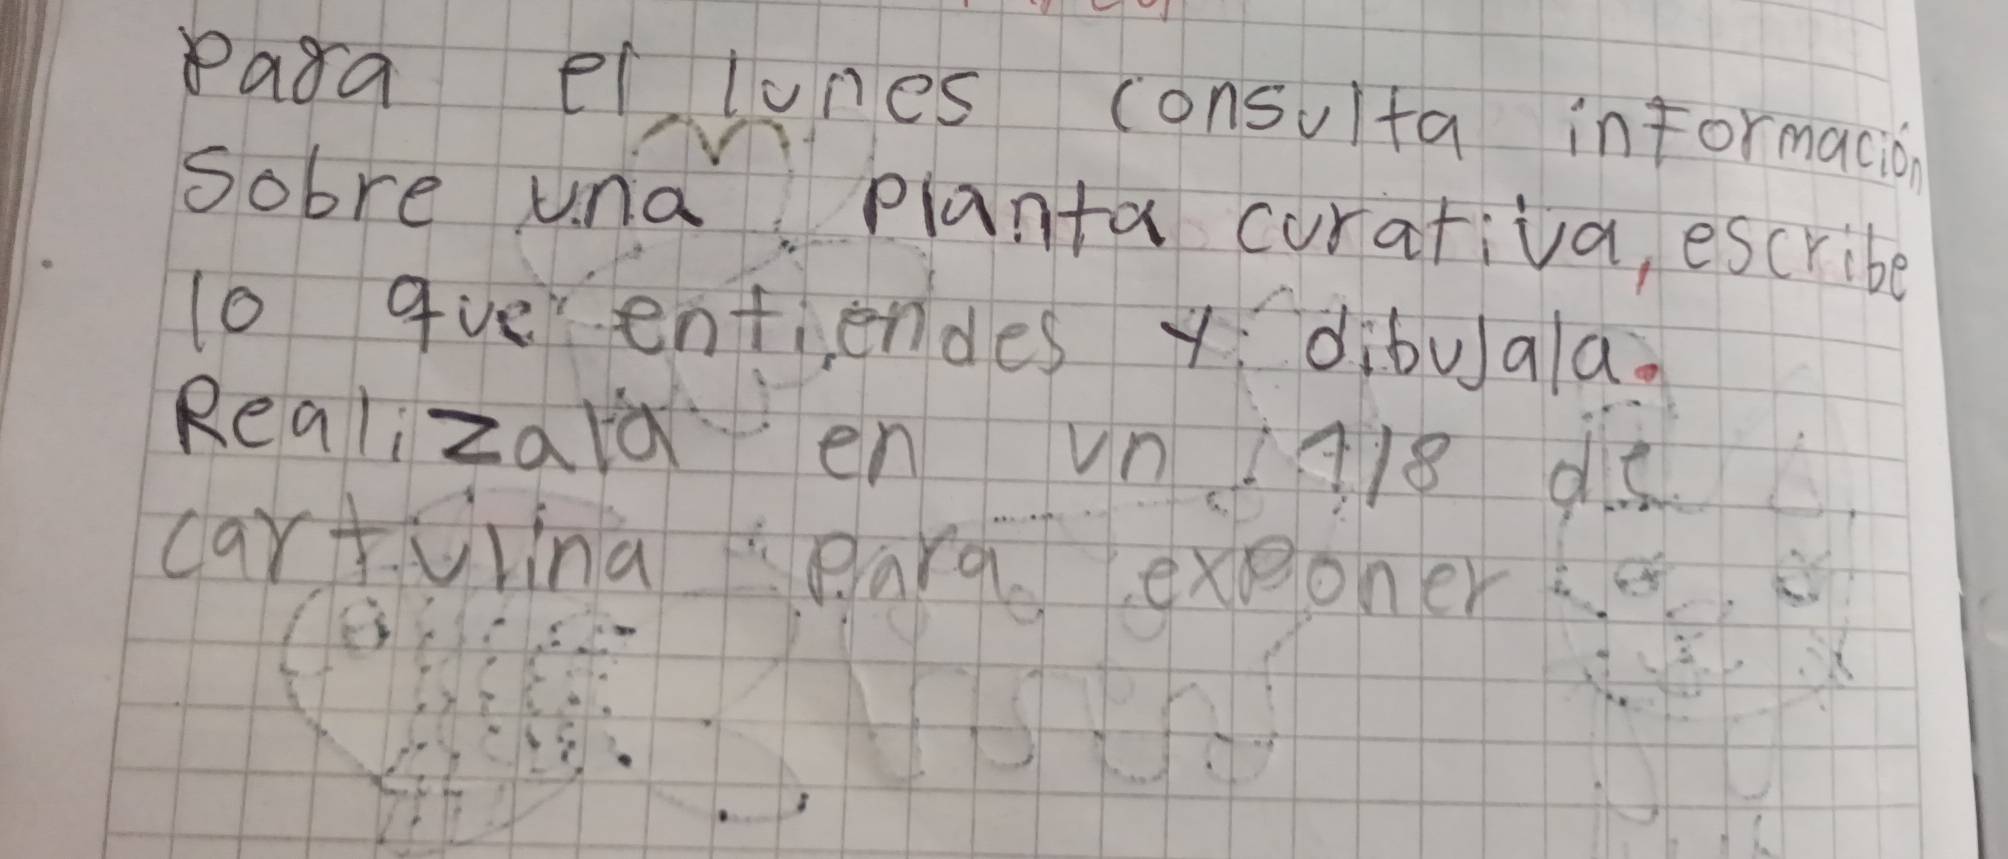 Para el lunes consulta información
sobre una planta curativa, escribe
lo que entiendes y dibujala.
Realizala en un 1/8 de
cartulina para exponer